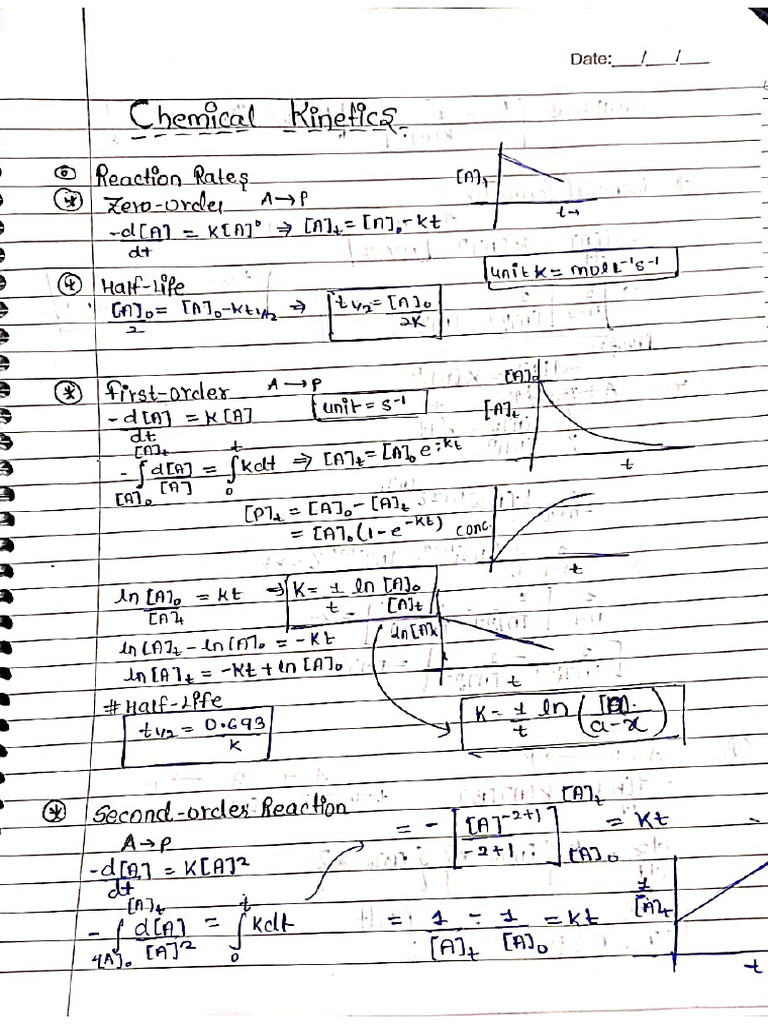 Date:__/__/__
Chemical Kinetics.
Reaction Rates
Zero-order A→P
[A]t
t→
-d[A]/dt = K[A]⁰ ⇒ [A]t = [A]₀-kt
unit K = mol L⁻¹s⁻¹
Half-life
[A]₀/2 = [A]₀-Kt1/2 ⇒ t1/2 = [A]₀/2K
First-order A→P
[A]₀
[A]t
t
-d[A]/dt = K[A] unit = s⁻¹
-∫[A]₀[A]t d[A]/[A] = ∫0t kdt ⇒ [A]t = [A]₀e-kt
[P]t = [A]₀ - [A]t
= [A]₀(1-e-kt) conc.
t
ln [A]₀/[A]t = kt ⇒ K = 1/t ln [A]₀/[A]t
ln[A]t
t
ln[A]t - ln[A]₀ = -Kt
ln[A]t = -Kt + ln[A]₀
# Half-life
t1/2 = 0.693/K
K = 1/t ln ( /a-x)
Second-order Reaction
A→P
-d[A]/dt = K[A]²
-∫[A]₀[A]t d[A]/[A]² = ∫0t kdt
= -[[A]-2+1/-2+1][A]₀[A]t = Kt
= 1/[A]t - 1/[A]₀ = kt
1/[A]t
t